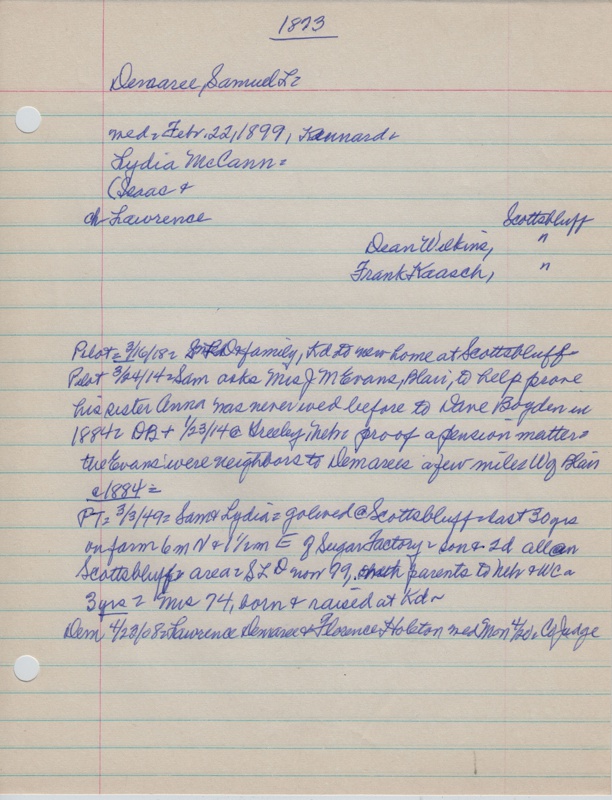 1873
Demaree, Samuel L=
med= Febr. 22, 1899, Kennard=
Lydia McCann=
(Isaac +
ch Lawrence Scottsbluff
Dean Wilkins, "
Frank Kaasch, "
Pilot= 3/16/18= S L D + family, Kd to new home at Scottsbluff
Pilot 3/04/14= Sam asks Mrs J M Evans, Blair, to help prove
his sister Anna was never wed before to Dave Bogden in
1884= DB+ 1/23/14 @ Greeley, Nebr proof a pension matter=
the Evans' were neighbors to Demarees a few miles W of Blair
c1884=
PT= 3/3/49= Sam & Lydia= gol wed @ Scottsbluff= last 30 yrs
on farm 6 m N & 1 1/2 m E of Sugar Factory= son & 2d all an
Scottsbluff area= S L D now 79, parents to Nebr & WC ~
3 yrs= Mrs 74, born & raised at Kd~
Dem 4/23/08= Lawrence Demaree & Florence Holston wed Mon 4/20, Co Judge